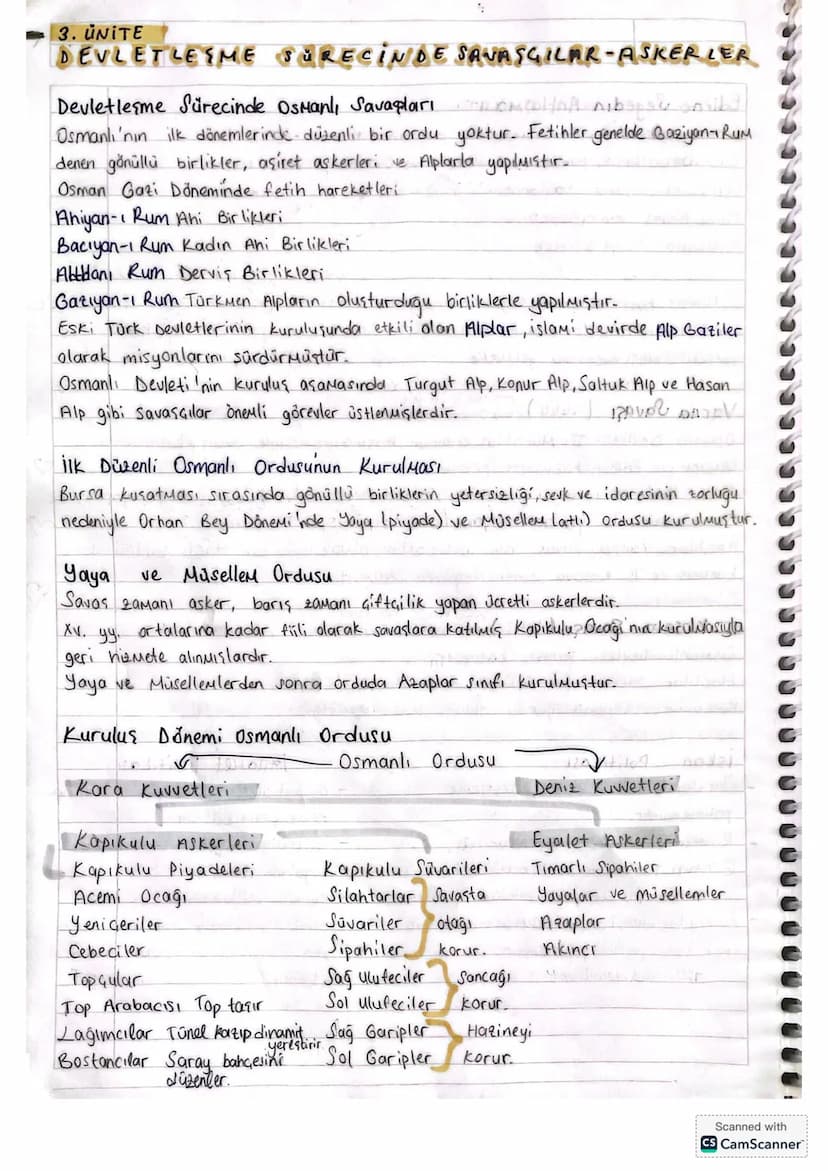 3. ÜNİTE
DEVLETLEŞME SÜRECİNDE SAVAŞÇILAR-ASKERLER
Devletleşme Sürecinde Osmanlı Savaşları
Osmanlı'nın ilk dönemlerinde düzenli bir ordu yoktur. Fetihler genelde Gaziyan-ı Rum
denen gönüllü birlikler, aşiret askerleri ve Alplarla yapılmıştır.
Osman Gazi Döneminde fetih hareketleri
Ahiyan-ı Rum Ahi Birlikleri
Bacıyan-ı Rum Kadın Ahi Birlikleri
Rum Derviş Birlikleri
Gaziyan-ı Rum Türkmen Alpların oluşturduğu birliklerle yapılmıştır.
Eski Türk Devletlerinin kuruluşunda etkili olan Alplar, islami devirde Alp Gaziler
olarak misyonlarını sürdürmüştür.
Osmanlı Devleti'nin kuruluş aşamasında Turgut Alp, Konur Alp, Saltuk Alp ve Hasan
Alp gibi savaşçılar önemli görevler üstlenmişlerdir.
İlk Düzenli Osmanlı Ordusunun Kurulması
Bursa kuşatması sırasında gönüllü birliklerin yetersizliği, sevk ve idaresinin zorluğu
nedeniyle Orhan Bey Dönemi'nde Yaya (piyade) ve Müsellem (atlı) ordusu kurulmuştur.
Yaya ve Müsellem Ordusu
Savaş zamanı asker, barış zamanı çiftçilik yapan ücretli askerlerdir.
XV. yy. ortalarına kadar fiili olarak savaşlara katılmış Kapıkulu Ocağı'nın kurulmasıyla
geri hizmete alınmışlardır.
Yaya ve Müsellemlerden sonra orduda Azaplar sınıfı kurulmuştur.
Kuruluş Dönemi Osmanlı Ordusu
Osmanlı Ordusu
Kara Kuvvetleri Deniz Kuvvetleri
Kapıkulu Askerleri Eyalet Askerleri
Kapıkulu Piyadeleri Kapıkulu Süvarileri Tımarlı Sipahiler
Acemi Ocağı Silahtarlar Savaşta Yayalar ve müsellemler
Yeniçeriler Süvariler otağı Azaplar
Cebeciler Sipahiler korur. Akıncı
Topçular Sağ Ulufeciler Sancağı
Top Arabacısı Top taşır Sol Ulufeciler korur.
Lağımcılar Tünel kazıp dinamit yerleştirir Sağ Garipler Hazineyi
Bostancılar Saray bahçesini Sol Garipler korur.
düzenler.
Scanned with
CS CamScanner